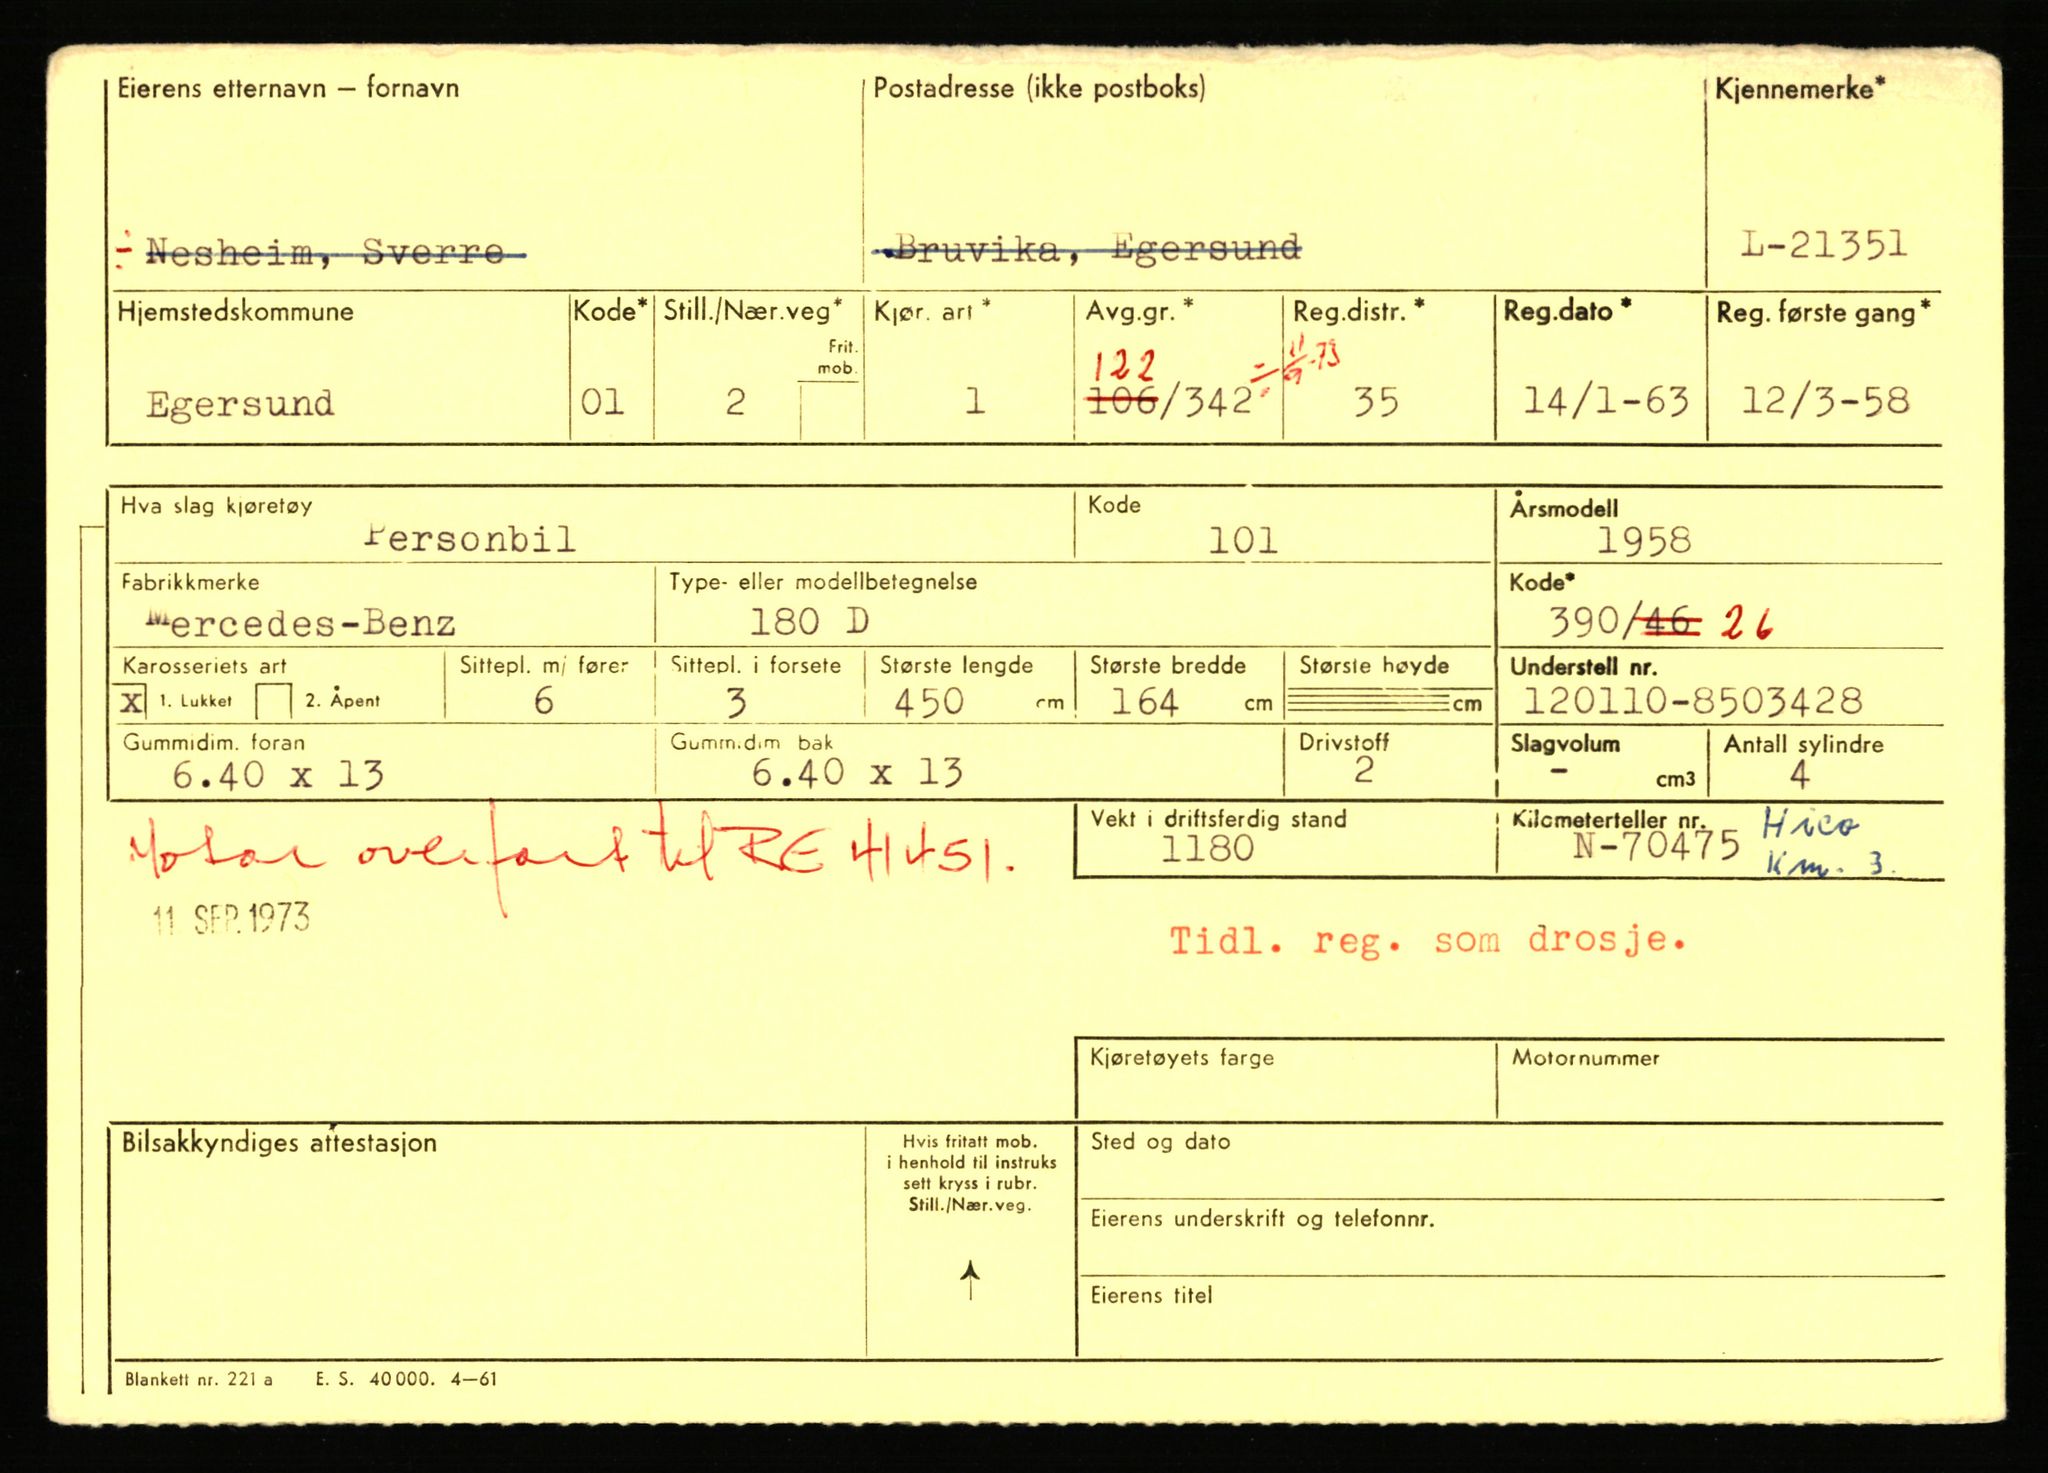 Eierens etternavn – fornavn Postadresse (ikke postboks) Kjennemerke*
Nesheim, Sverre Bruvika, Egersund L-21351
Hjemstedskommune Kode* Still./Nær.veg* Kjør. art * Avg.gr. * Reg.distr. * Reg.dato * Reg. første gang*
Frit.
mob.
122 ÷ 11/9-73
Egersund 01 2 1 106/342 35 14/1-63 12/3-58
Hva slag kjøretøy Kode Årsmodell
Personbil 101 1958
Fabrikkmerke Type- eller modellbetegnelse Kode*
Mercedes-Benz 180 D 390/46 26
Karosseriets art Sittepl. m/ fører Sittepl. i forsete Største lengde Største bredde Største høyde Understell nr.
X 1. Lukket 2. Åpent 6 3 450 cm 164 cm cm 120110-8503428
Gummidim. foran Gummidim bak Drivstoff Slagvolum Antall sylindre
6.40 x 13 6.40 x 13 2 - cm3 4
Motor overført til RE 41451.
Vekt i driftsferdig stand Kilometerteller nr. Hico
1180 N-70475 Km. 3.
11 SEP. 1973
Tidl. reg. som drosje.
Kjøretøyets farge Motornummer
Bilsakkyndiges attestasjon
Hvis fritatt mob.
i henhold til instruks
sett kryss i rubr.
Still./Nær.veg.
Sted og dato
Eierens underskrift og telefonnr.
Eierens titel
Blankett nr. 221 a E. S. 40 000. 4–61